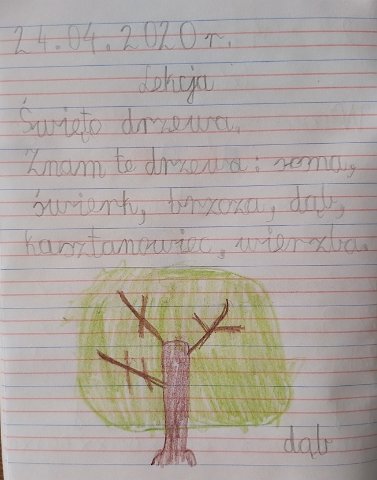 24.04.2020 r.
Lekcja
Święto drzewa.
Znam te drzewa: sosna,
świerk, brzoza, dąb,
kasztanowiec, wierzba.
dąb